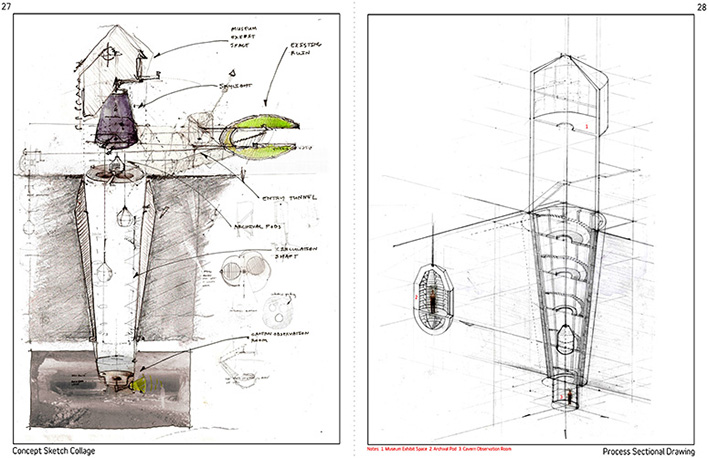 27
28
MUSEUM
EXHIBIT
SPACE
EXISTING
RUIN
SKYLIGHT
ENTRY TUNNEL
ARCHIVAL PODS
CIRCULATION
SHAFT
OBSERVATION
ROOM
1
2
3
Concept Sketch Collage
Notes: 1. Museum Exhibit Space 2. Archival Pod 3. Cavern Observation Room
Process Sectional Drawing